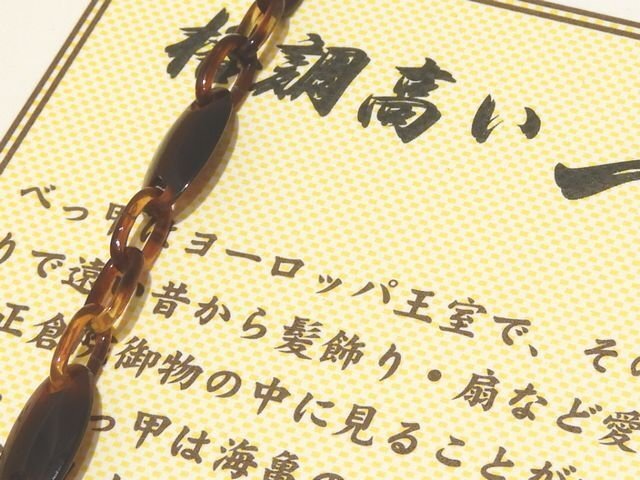 格調高い一
べっ甲はヨーロッパ王室で、その
りで遠い昔から髪飾り・扇など愛
正倉院御物の中に見ることが
っ甲は海亀の